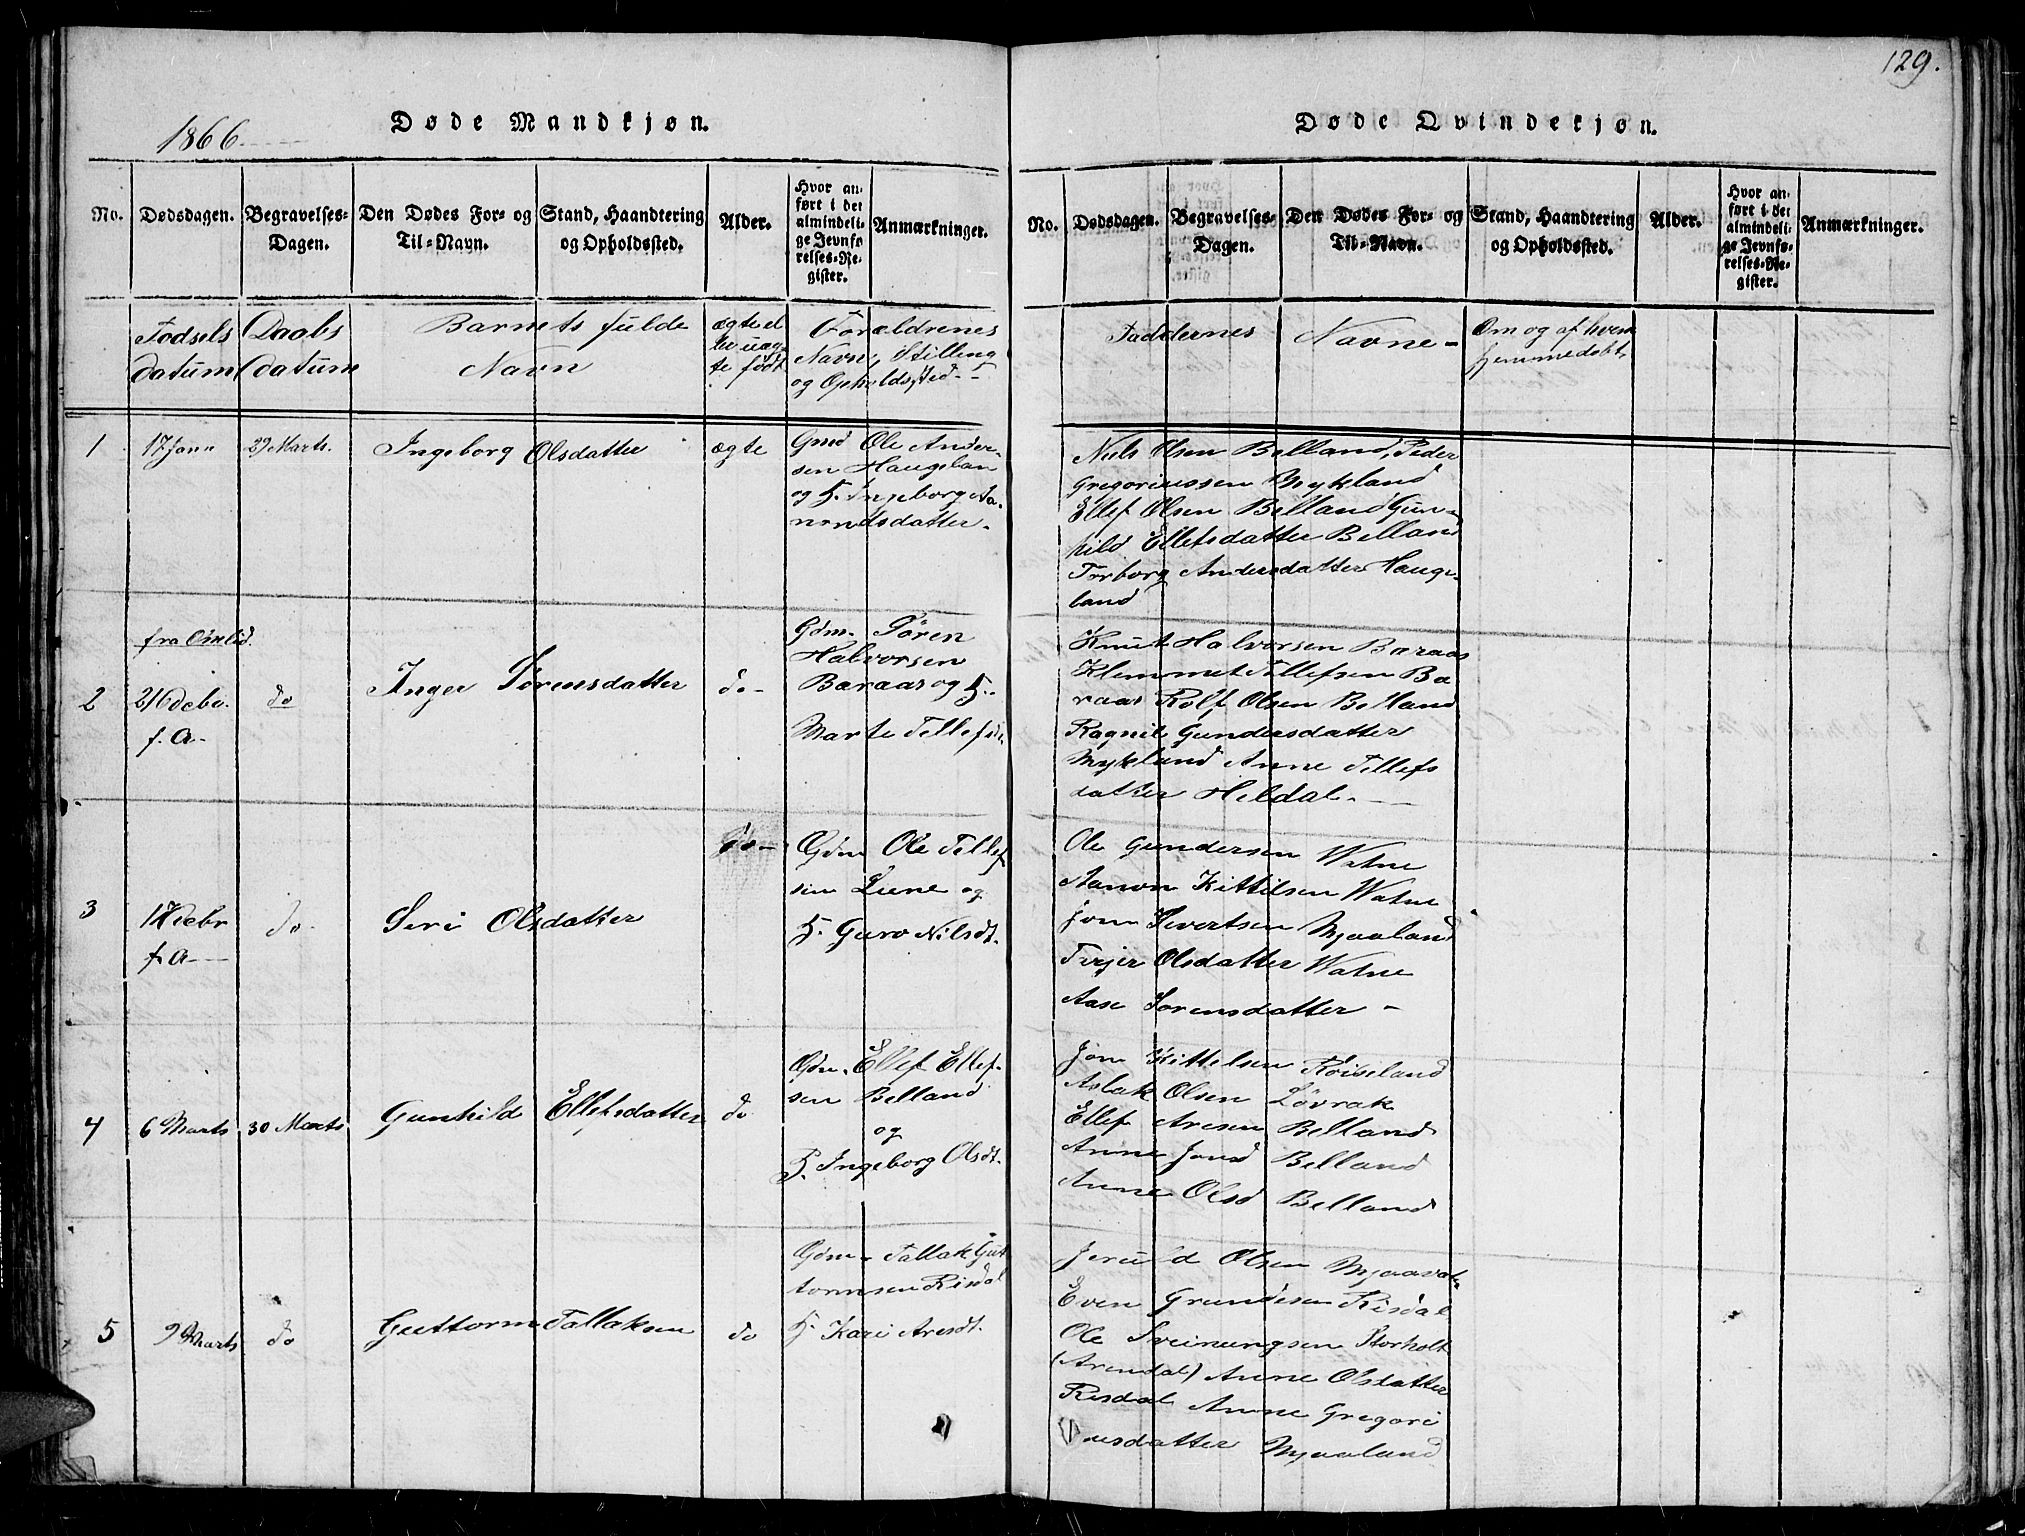 129.
1866
Døde Mandkjøn.
No.
Dødsdagen.
Begravelses-
Dagen.
Den Dødes For- og
Til-Navn.
Stand, Haandtering
og Opholdssted.
Alder.
Hvor an-
ført i det
almindeli-
ge Jevnfø
relses-Re-
gister.
Anmærkninger.
Fødsels
datum
Daabs
datum
Barnets fulde
Navn
ægte el
ler uæg-
te født
Forældrenes
Navn, Stilling
og Opholdssted
1
17 Jan
29 Marts.
Ingeborg Olsdatter
ægte
Gmd Ole Ander-
sen Haugelan
og H. Ingeborg Aa-
nondsdatter.
fra Omlid
2
f. A-
do
Inger Sørensdatter
do-
Gdm. Søren
Halvorsen
Baraas og H.
Marte Tellefsd.
3
f. A-
do-
Siri Olsdatter
do-
Gdm Ole Tellef
sen Lune og
H. Guro Nilsdt.
4
6 Marts
30 Marts
Gunhild Ellefsdatter
do
Gdm. Ellef Ellef-
sen Belland
og
H. Ingeborg Olsdt.
5
9 Marts
do
Guttorm Tallaksen
do
Gdm- Tallak Gut
tormsen Risdal
H. Kari Aresdt.
Døde Qvindekjøn.
No.
Dødsdagen.
Begravelses-
Dagen.
Den Dødes For- og
Til-Navn.
Stand, Haandtering
og Opholdssted.
Alder.
Hvor an-
ført i det
almindeli-
ge Jevnfø-
relses-Re-
gister.
Anmærkninger.
Faddernes Navne-
Om og af hvem
hjemmedøbt
Niels Olsen Belland, Peder
Gregoriussen Mykland
Ellef Olsen Belland Gun-
hild Ellefsdatter Belland
Torborg Andersdatter Hauge-
land
Knut Halvorsen Baraas
Klemmet Tellefsen Ba
raas Rolf Olsen Belland
Ragnil Gundersdatter
Mykland Anne Tellefs
datter Heldal.
Ole Gundersen Watne
Aanon Kittilsen Watne
Jon Sivertsen Mjaaland
Terjer Olsdatter Watne
Aase Sørensdatter -
Jon Kittelsen Røiseland
Aslak Olsen Løvrak
Ellef Aresen Belland
Anne Jonsd Belland
Anne Olsd Belland
Olsen
Even Grundesen Risdal
Ole Sveinungsen Storholt
(Arendal) Anne Olsdatter
Risdal Anne Gregori
usdatter Mjaaland